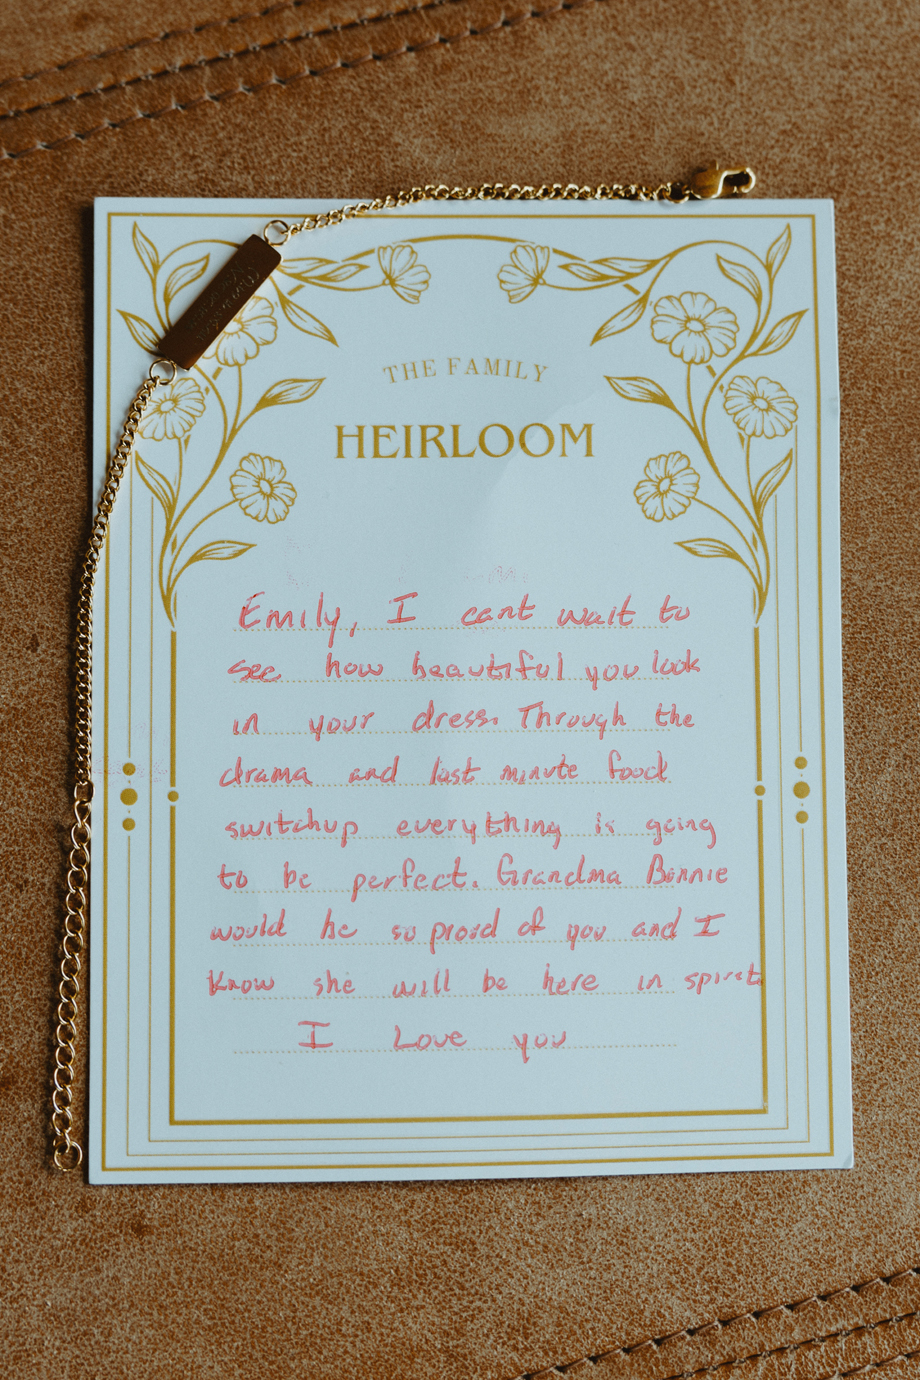 THE FAMILY
HEIRLOOM
Emily, I cant wait to
see how beautiful you look
in your dress. Through the
drama and last minute food
switchup everything is going
to be perfect. Grandma Bonnie
would be so proud of you and I
Know she will be here in spirit
I Love you